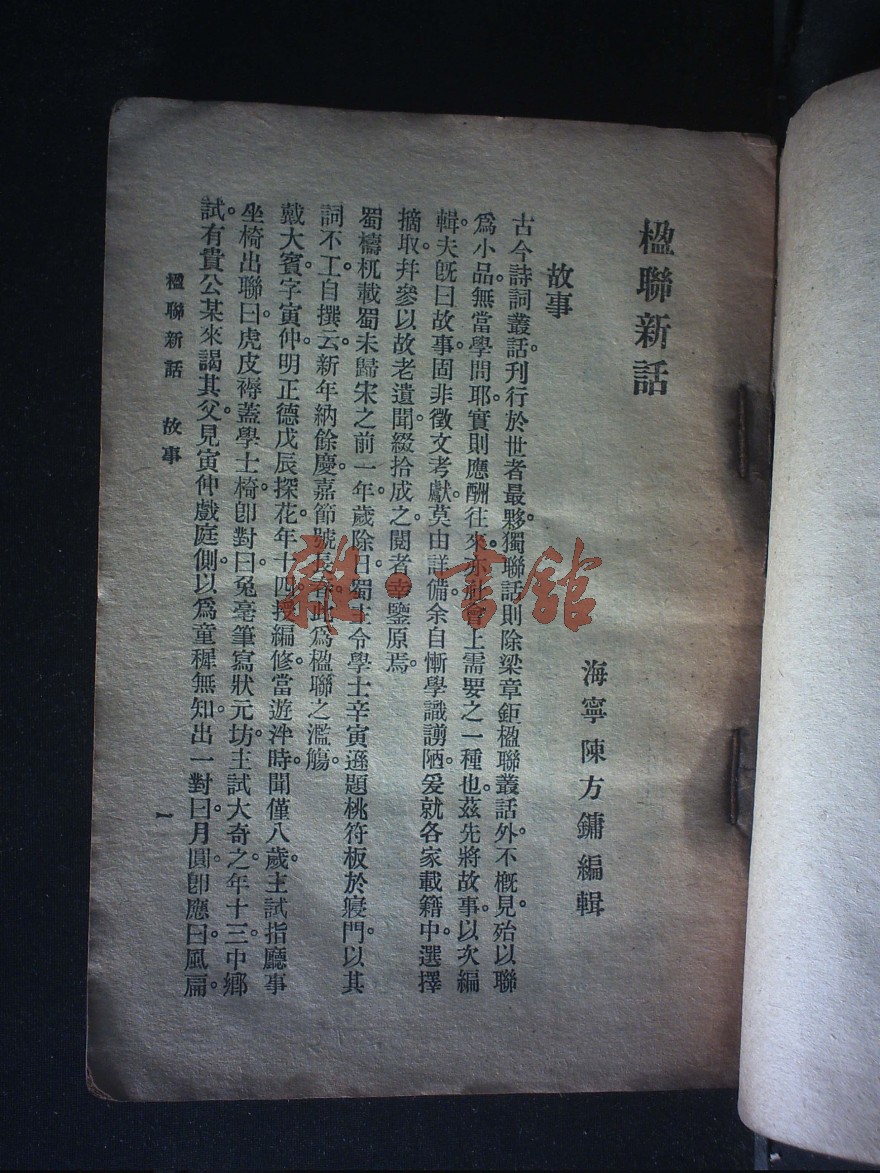 楹聯新話
海寧陳方鏞編輯
故事
古今詩詞叢話。刊行於世者最夥。獨聯話則除梁章鉅楹聯叢話外。不概見。殆以聯
爲小品。無當學問耶。實則應酬往來。亦社會上需要之一種也。茲先將故事以次編
輯。夫既曰故事。固非徵文考獻。莫由詳備。余自慚學識譾陋。爰就各家載籍中選擇
摘取。幷參以故老遺聞。綴拾成之。閱者幸鑒原焉。
蜀檮杌載蜀未歸宋之前一年。歲除日。蜀主令學士辛寅遜題桃符板於寢門。以其
詞不工。自撰云。新年納餘慶。嘉節號長春。此爲楹聯之濫觴。
戴大賓字寅仲。明正德戊辰探花。年十四。授編修。當遊泮時。聞僅八歲。主試指廳事
坐椅出聯曰。虎皮褥蓋學士椅。卽對曰。兔毫筆寫狀元坊。主試大奇之。年十三。中鄉
試。有貴公某來謁其父。見寅仲戲庭側。以爲童穉無知。出一對曰。月圓。卽應曰。風扁。
楹聯新話 故事
一
雜·書館